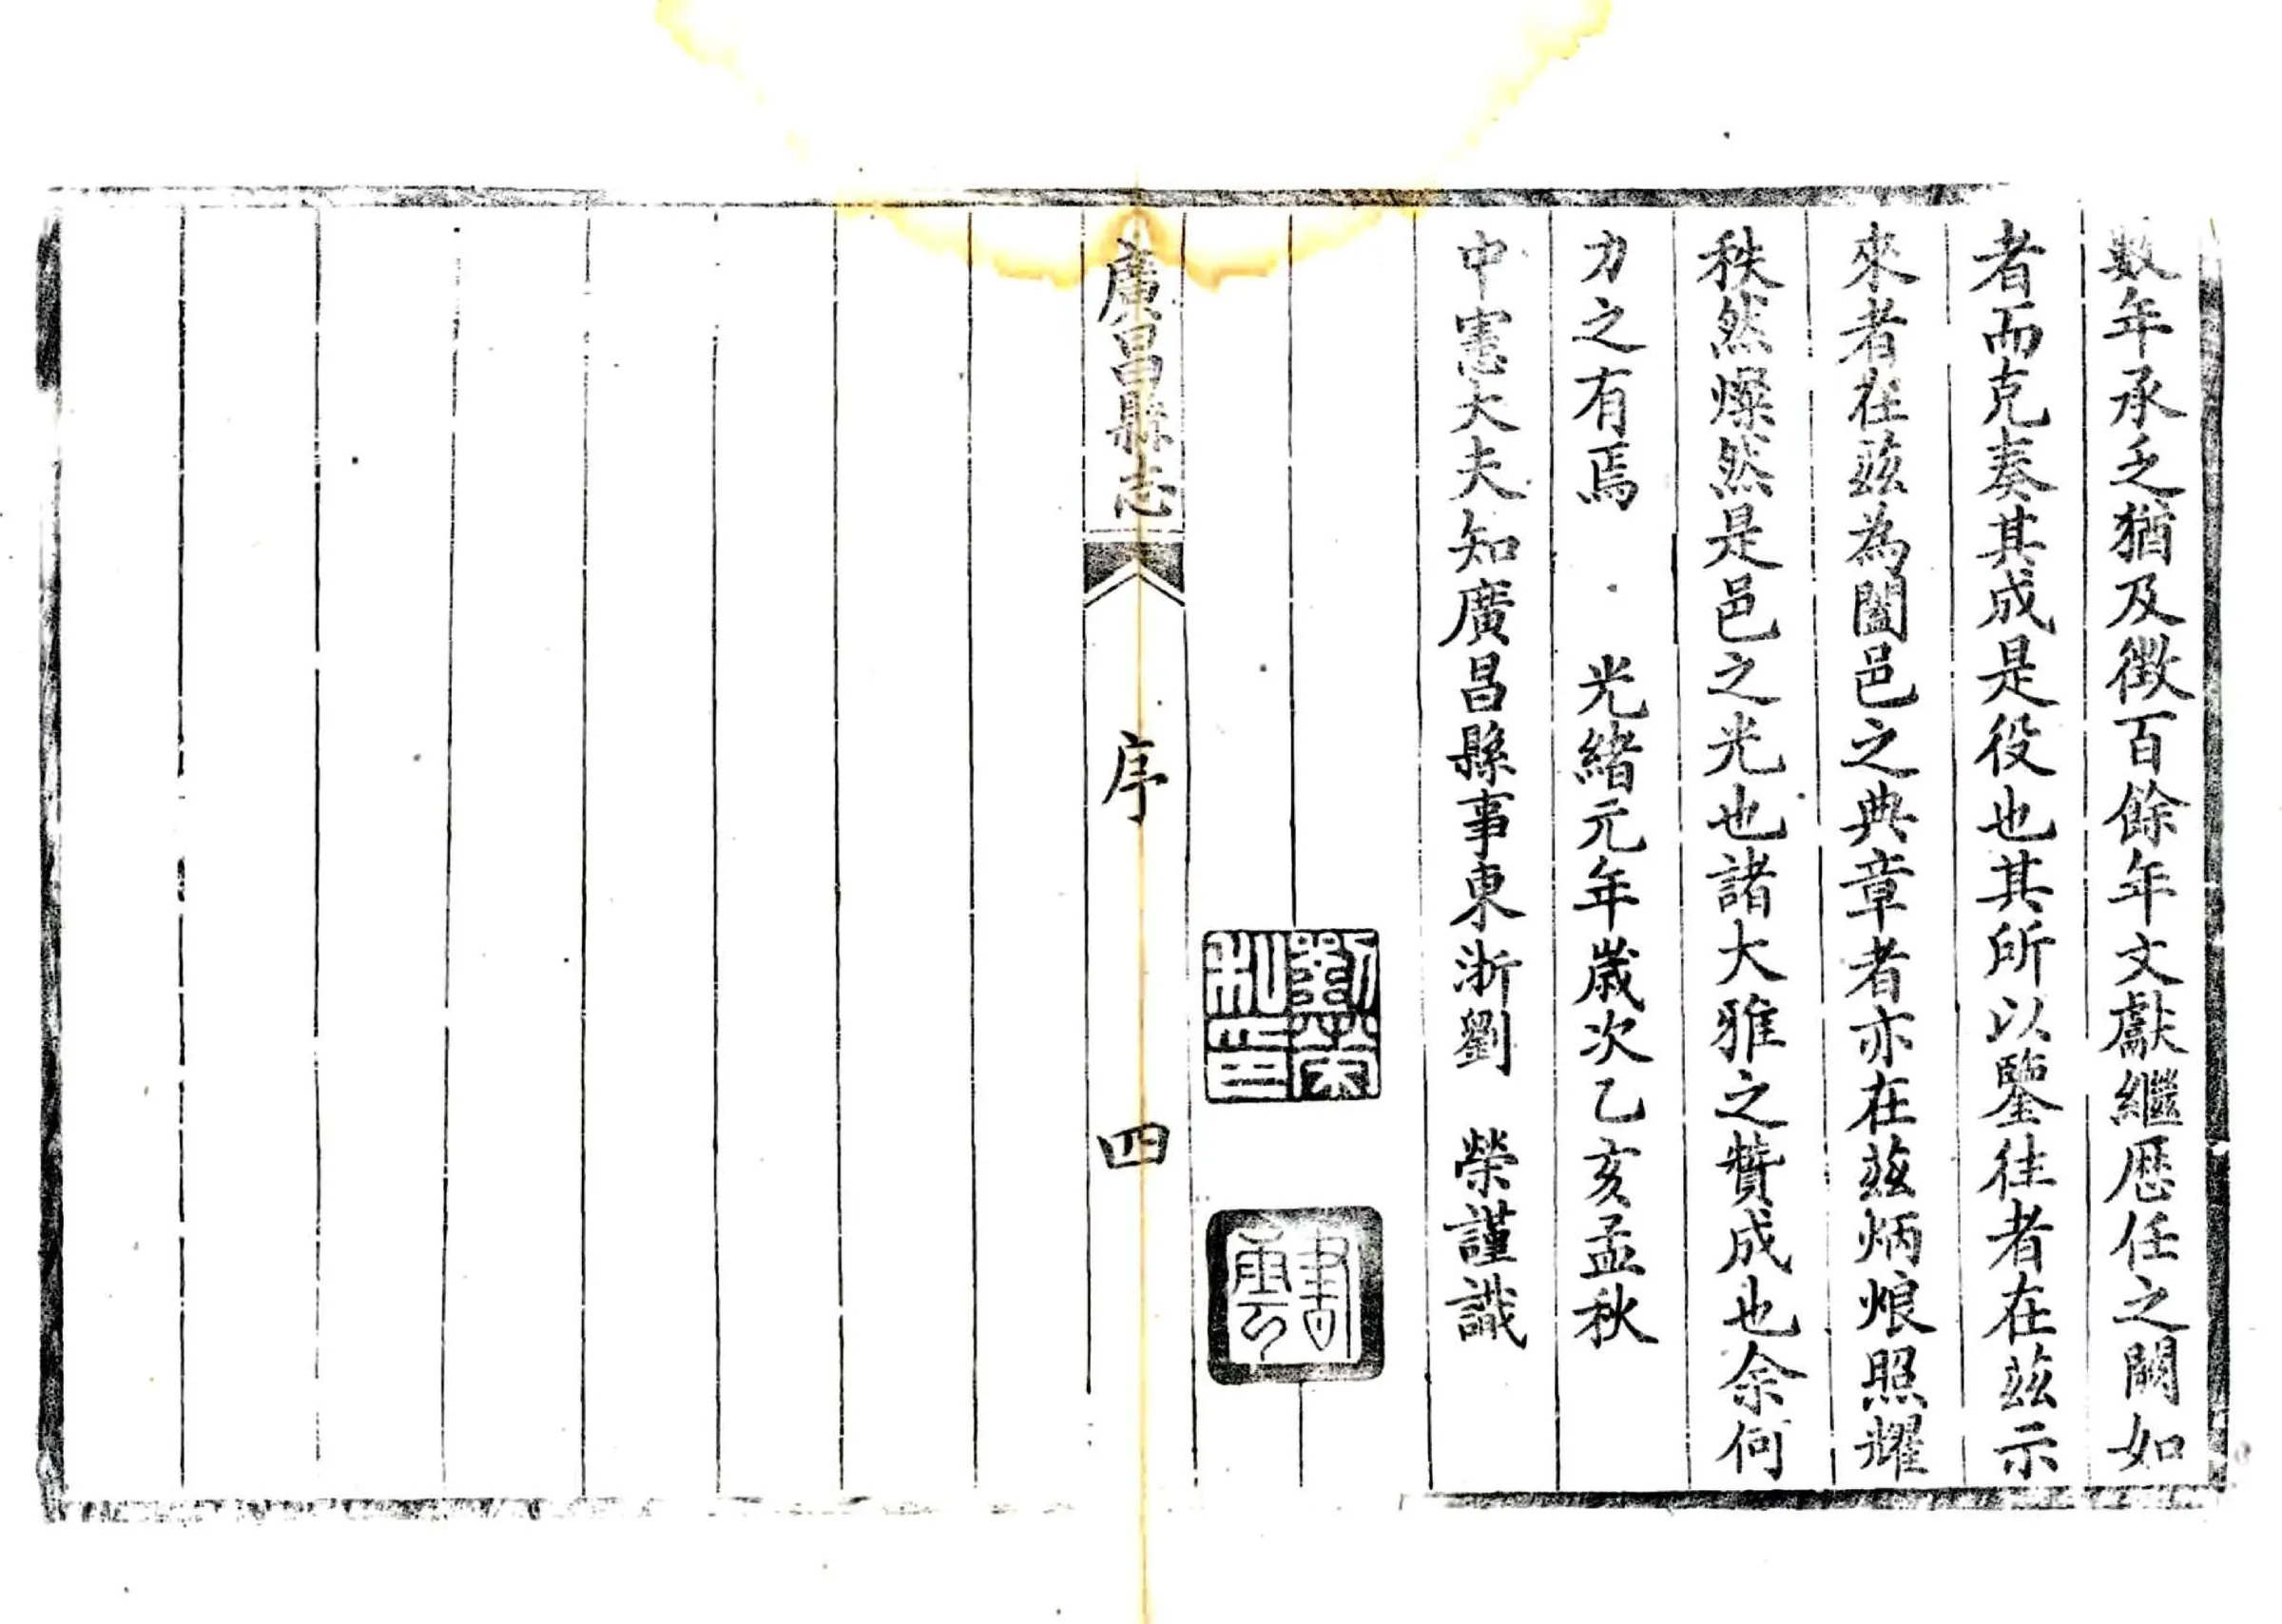 數年承乏猶及徵百餘年文獻繼歷任之闕如
者而克奏其成是役也其所以鑒往者在茲示
來者在茲為闔邑之典章者亦在茲炳烺照耀
秩然燦然是邑之光也諸大雅之贊成也余何
力之有焉 光緒元年歲次乙亥孟秋
中憲大夫知廣昌縣事東浙劉 榮謹識
劉榮
私印
書
雲
廣昌縣志 序 四